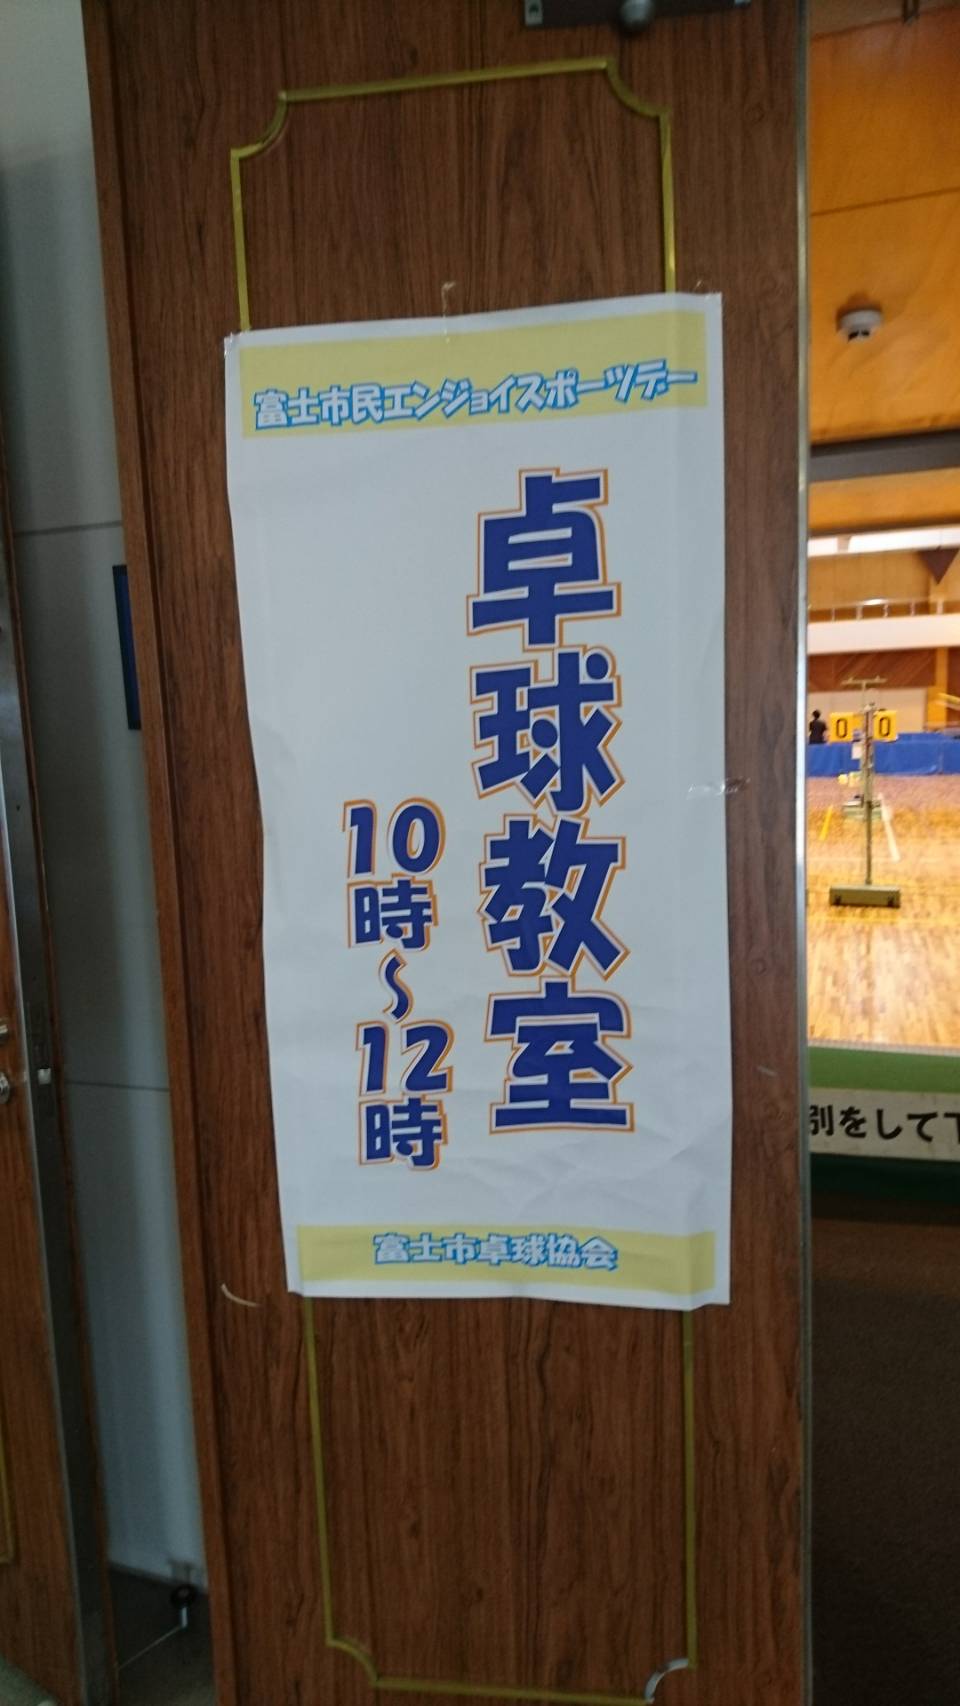 富士市民エンジョイスポーツデー
卓球教室
10時〜12時
富士市卓球協会
0 0
別をして下